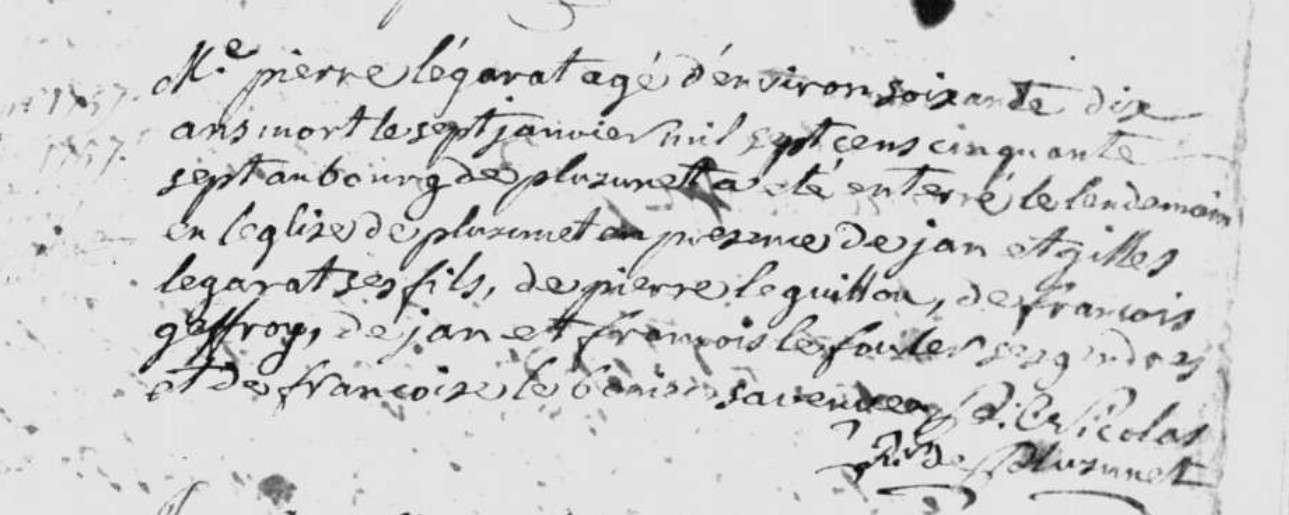 Me pierre légarat agé d'environ soixante dix
ans mort le sept janvier mil sept cens cinquante
sept au bourg de pluzunet a eté enterré le lendemain
en l'eglize de pluzunet en presence de jan et gilles
legarat ses fils, de pierre le guillou, de francois
geffroy, de jan et francois le fouler ses gendres
et de francoise le sa veuve Nicolas
Rr de Pluzunet
1757.
1757.